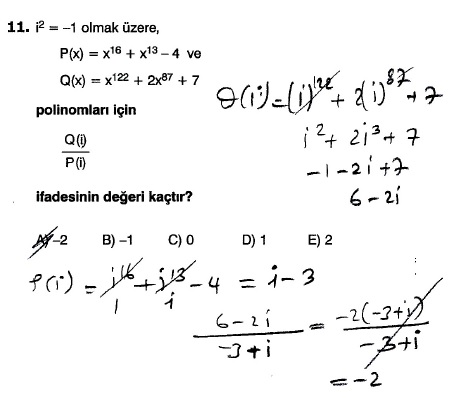 11. i² = −1 olmak üzere,
P(x) = x¹⁶ + x¹³ − 4 ve
Q(x) = x¹²² + 2x⁸⁷ + 7
polinomları için
Q(i)
P(i)
ifadesinin değeri kaçtır?
A) −2 B) −1 C) 0 D) 1 E) 2
Q(i) = (i)¹²² + 2(i)⁸⁷ + 7
i² + 2i³ + 7
−1 − 2i + 7
6 − 2i
P(i) = i¹⁶ + i¹³ − 4 = i − 3
1 i
6 − 2i = −2(−3+i)
−3 + i −3+i
= −2